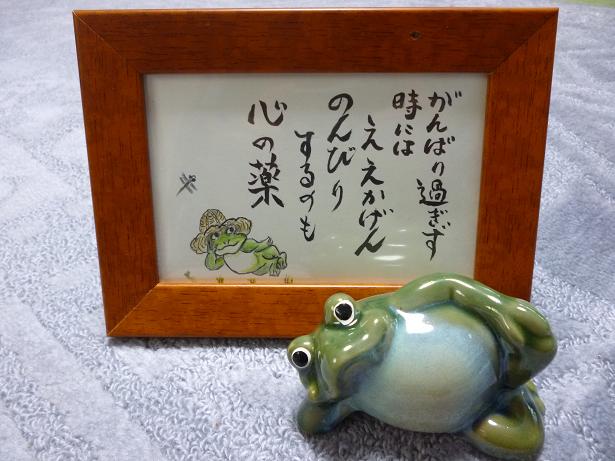 がんばり過ぎず
時には
ええかげん
のんびり
するのも
心の薬